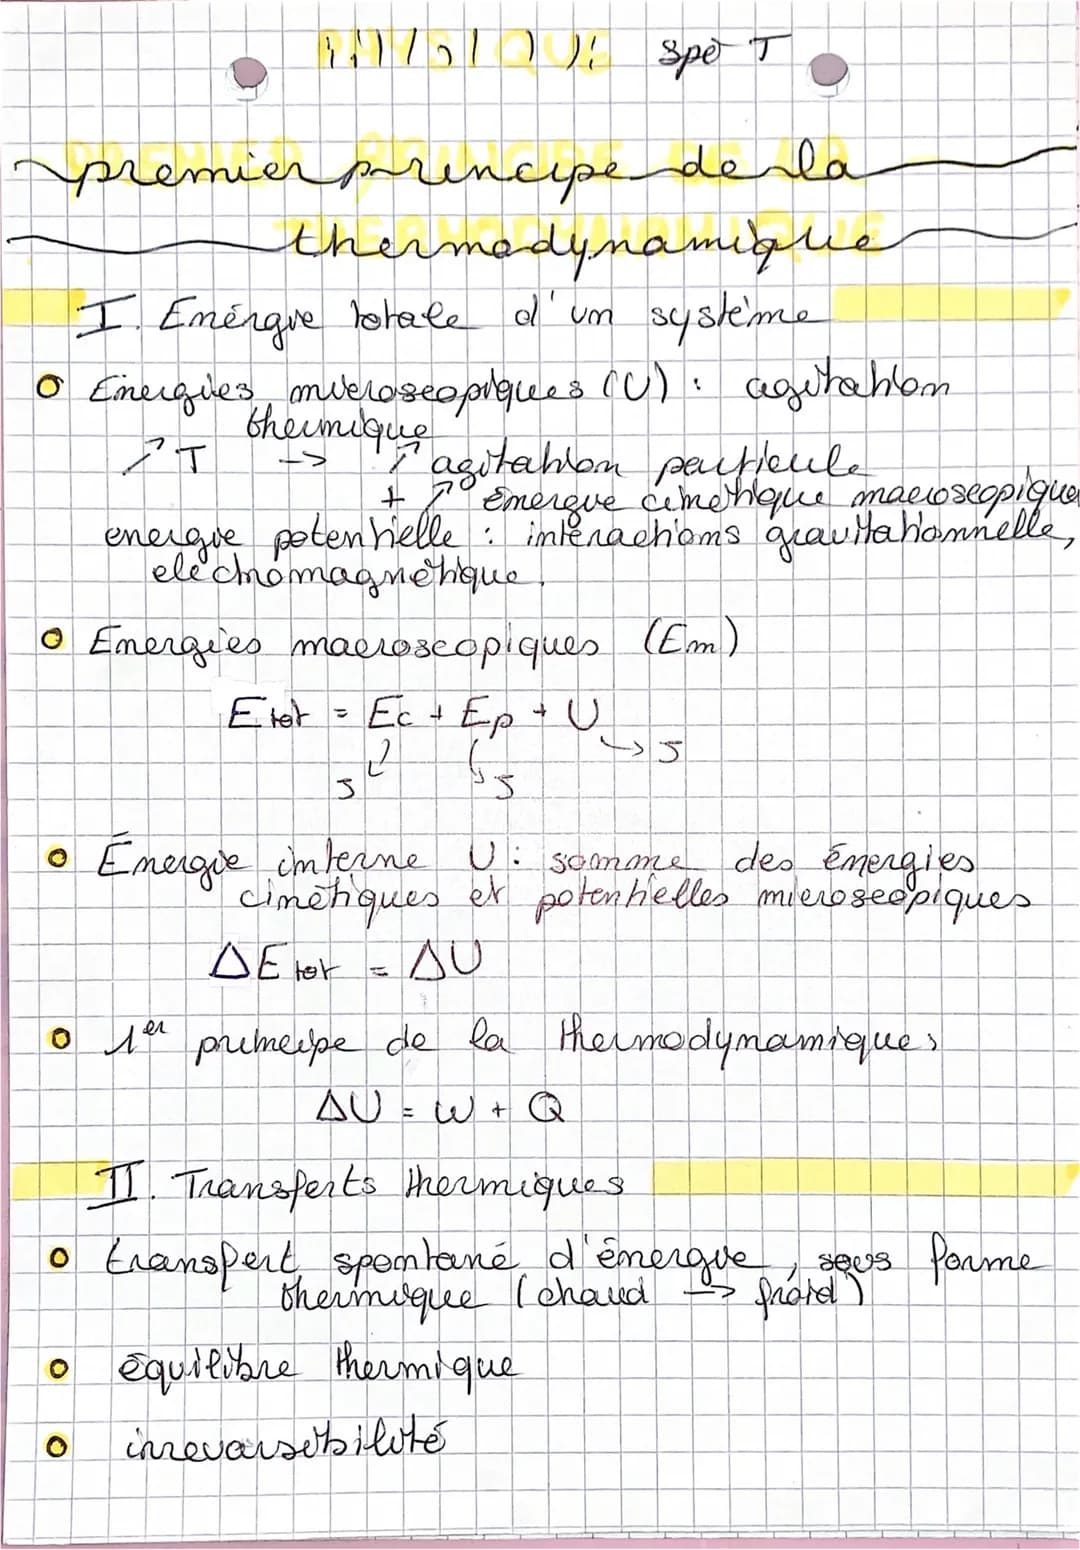 PHYSIQUE spé T
premier principe de la
thermodynamique
I. Énergie totale d'un système
Énergies microscopiques (U) : agitation
thermique
↗ T → ↗ agitation particule
+ ↗ énergie cinétique macroscopique
énergie potentielle : intéractions gravitationnelle,
eléctromagnétique.
Énergies macroscopiques (Em)
E tot = Ec + Ep + U
J J J
Énergie interne U : somme des énergies
cinétiques et potentielles microscopiques
ΔE tot = ΔU
1er principe de la thermodynamique :
ΔU = W + Q
II. Transferts thermiques
transfert spontané d'énergie, sous forme
thermique (chaud → froid)
équilibre thermique
irreversibilité